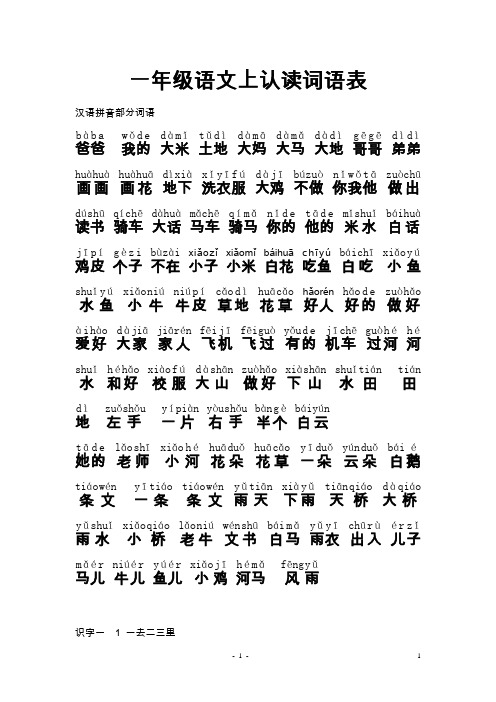 一年级语文上认读词语表
汉语拼音部分词语
bàba wǒde dàmǐ tǔdì dàmā dàmǎ dàdì gēgē dìdì
爸爸 我的 大米 土地 大妈 大马 大地 哥哥 弟弟
huàhuà huàhuā dìxià xǐyīfú dàjī búzuò nǐwǒtā zuòchū
画画 画花 地下 洗衣服 大鸡 不做 你我他 做出
dúshū qíchē dàhuà mǎchē qímǎ nǐde tāde mǐshuǐ báihuà
读书 骑车 大话 马车 骑马 你的 他的 米水 白话
jīpí gèzi búzài xiǎozǐ xiǎomǐ báihuā chīyú báichī xiǎoyú
鸡皮 个子 不在 小子 小米 白花 吃鱼 白吃 小 鱼
shuǐyú xiǎoniú niúpí cǎodì huācǎo hǎorén hǎode zuòhǎo
水 鱼 小 牛 牛皮 草地 花草 好人 好的 做好
àihào dàjiā jiārén fēijī fēiguò yǒude jīchē guòhé hé
爱好 大家 家人 飞机 飞过 有的 机车 过河 河
shuǐ héhǎo xiàofú dàshān zuòhǎo xiàshān shuǐtián tián
水 和好 校服 大山 做好 下山 水田 田
dì zuǒshǒu yípiàn yòushǒu bàngè báiyún
地 左手 一片 右手 半个 白云
tāde lǎoshī xiǎohé huāduǒ huācǎo yīduǒ yúnduǒ bái é
她的 老师 小河 花朵 花草 一朵 云朵 白鹅
tiáowén yītiáo tiáowén yǔtiān xiàyǔ tiānqiáo dàqiáo
条文 一条 条文 雨天 下雨 天桥 大桥
yǔshuǐ xiǎoqiáo lǎoniú wénshū báimǎ yǔyī chūrù érzǐ
雨水 小桥 老牛 文书 白马 雨衣 出入 儿子
mǎér niúér yúér xiǎojī hémǎ fēngyǔ
马儿 牛儿 鱼儿 小鸡 河马 风雨
识字一 1 一去二三里
- 1 - 1